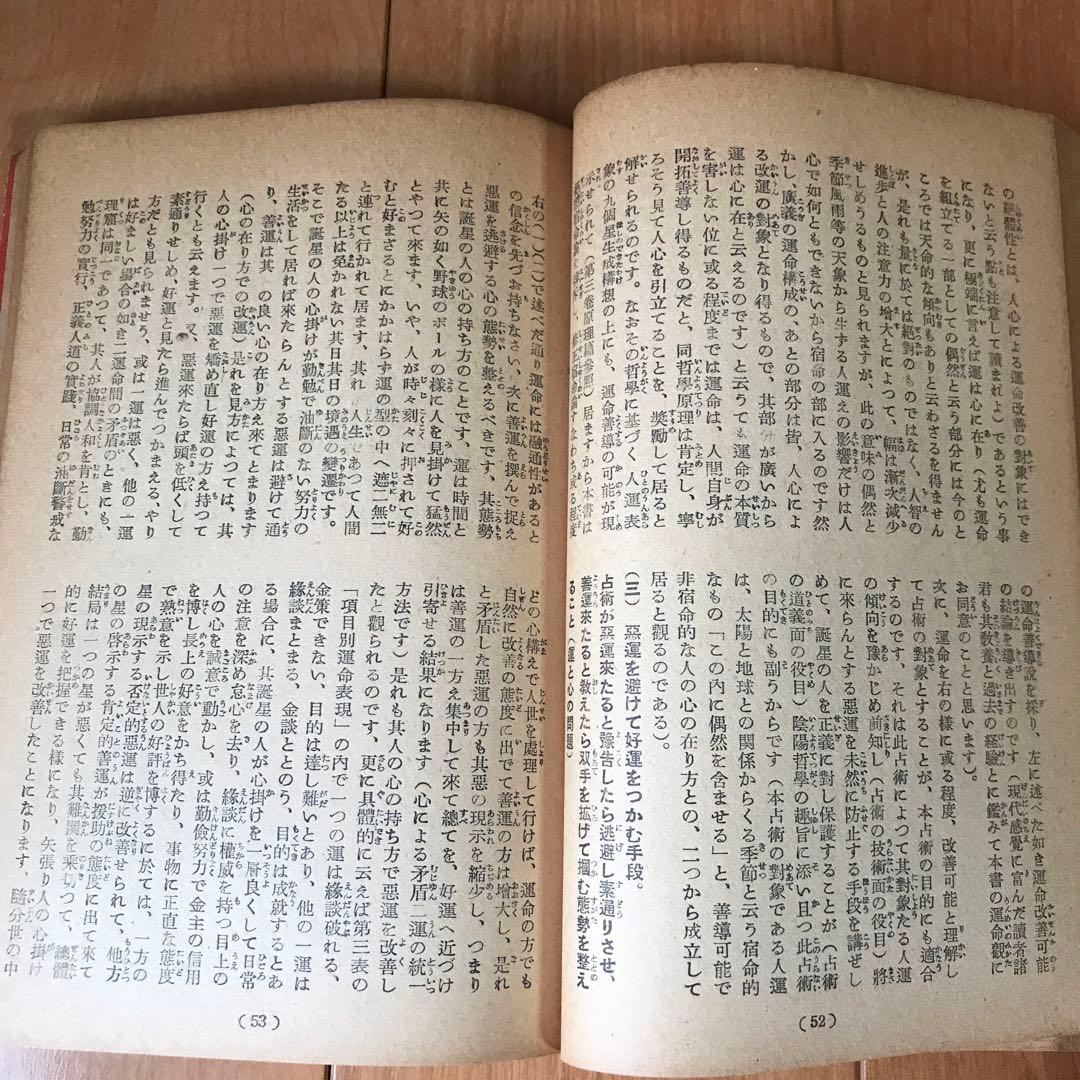 の總體性とは、人心による運命改善の對象にはでき
ないと云う點も注意して讀まれよ）であるという事
になり、更に極端に言えば運は心に在り（尤も運命
を組立てる一部としての偶然と云う部分には今のと
ころでは天命的な傾向もありと云わさるを得ません
が、是れも量に於ては絕對のものではなく、人智の
進步と人の注意力の增大とによつて、幅は漸次減少
せしめうるものと見られますが、此の意味の偶然と
季節風雨等の天象から生ずる人運えの影響だけは人
心で如何ともできないから宿命の部に入るのです然
かし、廣義の運命構成の、あとの部分は皆、人心によ
る改運の對象となり得るもので、其部分が廣いから
運は心に在と云えるのです）と云うても運命の本質
を害しない位に或る程度までは運命は、人間自身が
開拓善導し得るものだと、同哲學原理は肯定し、寧
ろそう見て人心を引立てることを、奬勵して居ると
解せられるのです。なおその哲學に基づく、人運表
象の九個星生成構想の上にも、運命善導の可能が現
示せられて（第三卷原理篇參照）居ますから本書は
の運命善導說を採り、左に述べた如き運命改善可能
の結論を導き出すのです（現代感覺に富んだ讀者諸
君も其敎養と過去の經驗とに鑑みて本書の運命觀に
お同意のことと思います）。
次に、運命を右の樣に或る程度、改善可能と理解し
て占術の對象とすることが、本占術の目的にも適合
するのです、それは此占術によつて其對象たる人運
の傾向を豫かじめ前知し（占術の技術面の役目）將
に來らんとする惡運を未然に防止する手段を講ぜし
めて、誕星の人を正義に對し保護することが（占術
の道義面の役目）陰陽哲學の趣旨に添い且つ此占術
の目的にも副うからです（本占術の對象である人運
は、太陽と地球との關係からくる季節と云う宿命的
なもの「この內に偶然を含ませる」と、善導可能で
非宿命的な人の心の在り方との、二つから成立して
居ると觀るのである）。
（三）　惡運を避けて好運をつかむ手段。
占術が惡運來たると豫告したら逃避し素通りさせ、
善運來たると敎えたら双手を拡げて掴む態勢を整え
ること（運と心の問題）
（52）
右の（一）（二）で述べだ通り運命には融通性があると
の信念を先づお持ちなさい、次に善運を撰んで捉え
惡運を逃避する心の態勢を整えるべきです、其態勢
とは誕星の人の心の持ち方のことです、運は時間と
共に矢の如く野球のボールの樣に人を見掛けて猛然
とやつて來ます、いや、人が時々刻々に押されて好
むと好まざるとにかかはらず運の型の中へ遮二無二
と連れて行かれて居ます、其れ　人生であつて人間
たる以上は免かれない其日其日の境遇の變遷です。
そこで誕星の人の心掛けが勤勉で油斷のない努力の
生活をして居れば來たらんとする惡運は避けて通
り、善運は其　の良い心の在り方え來てとまります
（心の在り方での改運）是れを見方によつては、其
人の心掛け一つで惡運を矯め直し好運の方え持つて
行くとも云えます。又　惡運來たらば頭を低くして
素通りせしめ、好運と見たら進んでつかまえる、やり
方だとも見られませう、或は一運は惡く、他の一運
は好ましい場合の如き二運命間の矛盾のときにも、
理窟は同一であつて、其人が協調人和を旨とし、勤
勉努力の實行、正義人道の實踐、日常の油斷警戒な
どの心構えで人世を處理して行けば、運命の方でも
自然に改善の態度に出でて善運の方は增大し、是れ
と矛盾した惡運の方も其惡の現示を縮少し、つまり
は善運の一方え集中して來て總てを、好運へ近づけ
引寄せる結果になります（心による矛盾二運の統一
方法です）是れも其人の心の持ち方で惡運を改善し
たと觀られるのです、更に具體的に云えば第三表の
「項目別運命表現」の內で一つの運は緣談破れる、
金策できない、目的は達し難いとあり、他の一運は
緣談まとまる、金談ととのう、目的は成就するとあ
る場合に、其誕星の人が心掛けを一層良くして日常
の注意を深め怠心を去り、緣談に權威を持つ目上の
人の心を誠意で動かし、或は勤儉努力で金主の信用
を博し長上の好意をかち得たり、事物に正直な態度
で熟意を示し世人の好評を博するに於ては、一方の
星の現示する否定的惡運は逆に改善せられて、他方
の星の啓示する肯定的善運が援助の態度に出て來て
結局は一つの星が惡くても其難關を乘切つて、總體
的に好運を把握できる樣になり、矢張り人の心掛け
一つで惡運を改善したことになります。隨分世の中
（53）